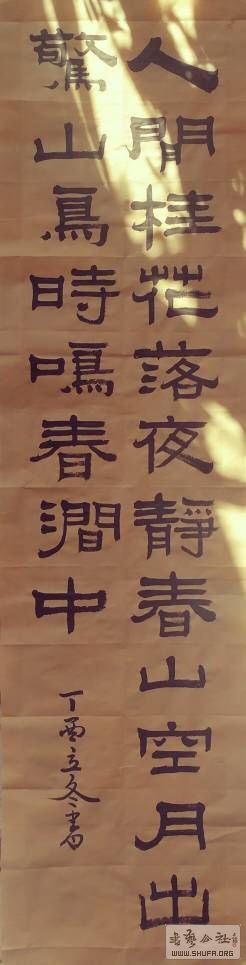 人閒桂花落夜靜春山空月出
驚山鳥時鳴春澗中
丁酉立冬書
書藝公社
WWW.SHUFA.ORG